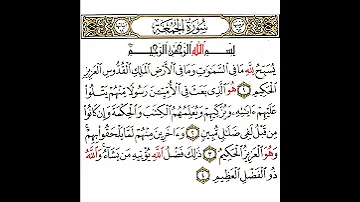 سُورَةُ الْجُمُعَةِ
بِسْمِ اللَّهِ الرَّحْمَٰنِ الرَّحِيمِ
يُسَبِّحُ لِلَّهِ مَا فِي السَّمَٰوَٰتِ وَمَا فِي الْأَرْضِ الْمَلِكِ الْقُدُّوسِ الْعَزِيزِ
الْحَكِيمِ ١ هُوَ الَّذِي بَعَثَ فِي الْأُمِّيِّينَ رَسُولًا مِّنْهُمْ يَتْلُوا
عَلَيْهِمْ ءَايَٰتِهِ وَيُزَكِّيهِمْ وَيُعَلِّمُهُمُ الْكِتَٰبَ وَالْحِكْمَةَ وَإِن كَانُوا
مِن قَبْلُ لَفِي ضَلَٰلٍ مُّبِينٍ ٢ وَءَاخَرِينَ مِنْهُمْ لَمَّا يَلْحَقُوا بِهِمْ
وَهُوَ الْعَزِيزُ الْحَكِيمُ ٣ ذَٰلِكَ فَضْلُ اللَّهِ يُؤْتِيهِ مَن يَشَاءُ وَاللَّهُ
ذُو الْفَضْلِ الْعَظِيمِ ٤